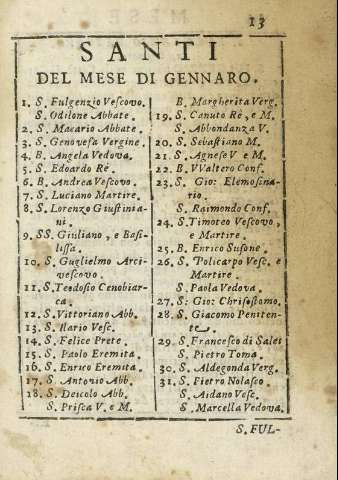 13
SANTI
DEL MESE DI GENNARO.
1. S. Fulgenzio Vescovo.
S. Odilone Abbate.
2. S. Macario Abbate.
3. S. Genovefa Vergine.
4. B. Angela Vedova.
5. S. Edoardo Rè.
6. B. Andrea Vescovo.
7. S. Luciano Martire.
8. S. Lorenzo Giustinia-
ni.
9. SS. Giuliano, e Basi-
lissa.
10. S. Guglielmo Arci-
vescovo.
11. S. Teodosio Cenobiar-
ca.
12. S. Vittoriano Abb.
13. S. Ilario Vesc.
14. S. Felice Prete.
15. S. Paolo Eremita.
16. S. Enrico Eremita.
17. S. Antonio Abb.
18. S. Deicolo Abb.
S. Prisca V. e M.
B. Margherita Verg.
19. S. Canuto Rè, e M.
S. Abbondanza V.
20. S. Sebastiano M.
21. S. Agnese V. e M.
22. B. VValtero Conf.
23. S. Gio: Elemosina-
rio.
S. Raimondo Conf.
24. S. Timoteo Vescovo,
e Martire.
25. B. Enrico Susone.
26. S. Policarpo Vesc. e
Martire.
S. Paola Vedova.
27. S: Gio: Chrisostomo.
28. S. Giacomo Peniten-
te.
29. S. Francesco di Sales
S. Pietro Toma.
30. S. Aldegonda Verg.
31. S. Pietro Nolasco.
S. Aidano Vesc.
S. Marcella Vedova.
S. FUL-